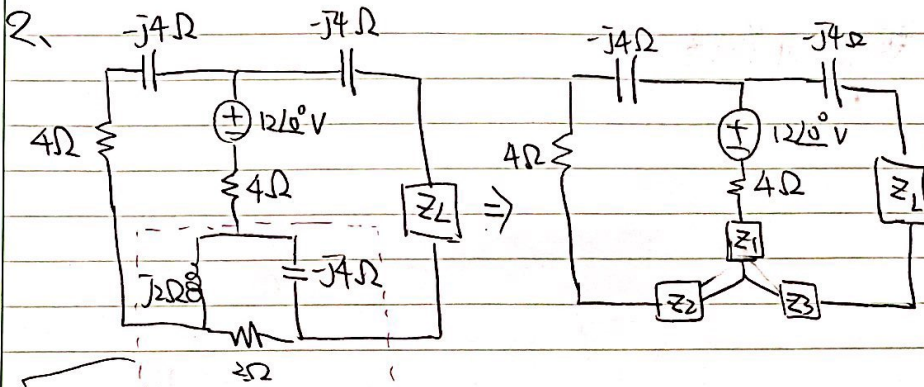 2、
-j4Ω -j4Ω
4Ω
+
-
12∠0° V
4Ω
ZL
⇒
j2Ω
-j4Ω
2Ω
-j4Ω -j4Ω
4Ω
+
-
12∠0° V
4Ω
ZL
Z1
Z2
Z3